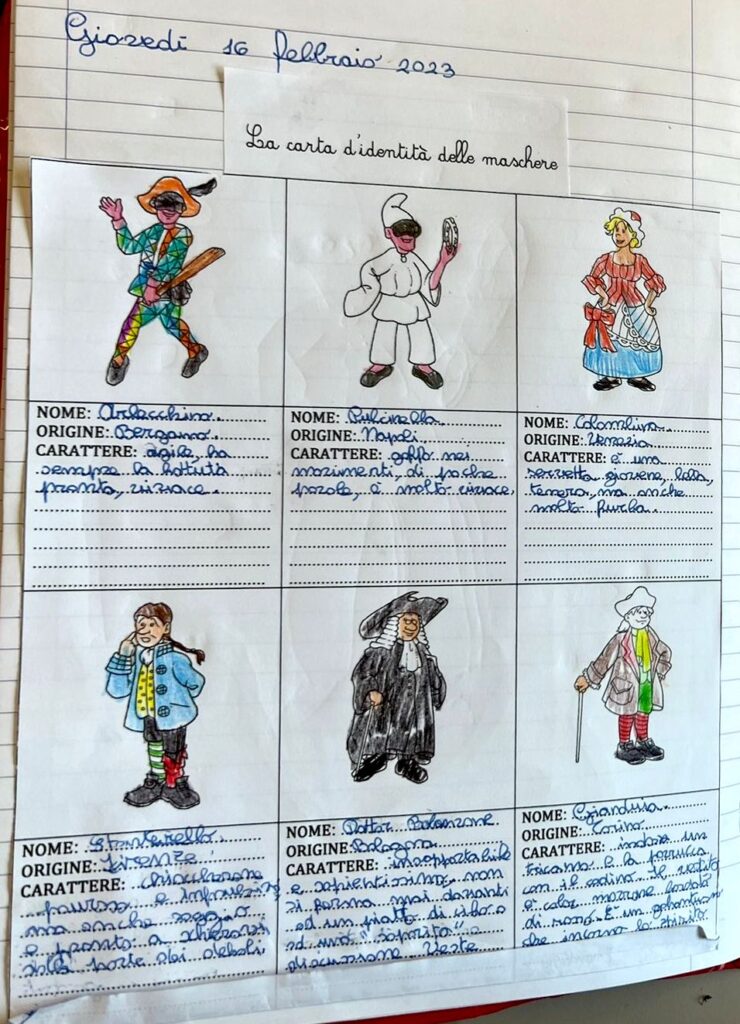 Giovedì 16 febbraio 2023
La carta d'identità delle maschere
NOME: Arlecchino.
ORIGINE: Bergamo.
CARATTERE: agile, ha
sempre la battuta
pronta, vivace.
NOME: Pulcinella.
ORIGINE: Napoli.
CARATTERE: goffo nei
movimenti, di poche
parole, è molto vivace.
NOME: Colombina.
ORIGINE: Venezia.
CARATTERE: è una
servetta giovane, bella,
tenera, ma anche
molto furba.
NOME: Stenterello.
ORIGINE: Firenze
CARATTERE: chiacchierone
pauroso e impulsivo,
ma anche saggio
e pronto a schierarsi
dalla parte dei deboli.
NOME: Dottor Balanzone
ORIGINE: Bologna
CARATTERE: insopportabile
e sapientissimo, non
si ferma mai davanti
ad un piatto di cibo o
ad una "saporita"
discussione. Veste
NOME: Gianduia.
ORIGINE: Torino.
CARATTERE: indossa un
tricorno e la parrucca
con il codino. Il vestito
è color marrone bordato
di rosso. È un galantuomo
che incarna lo spirito